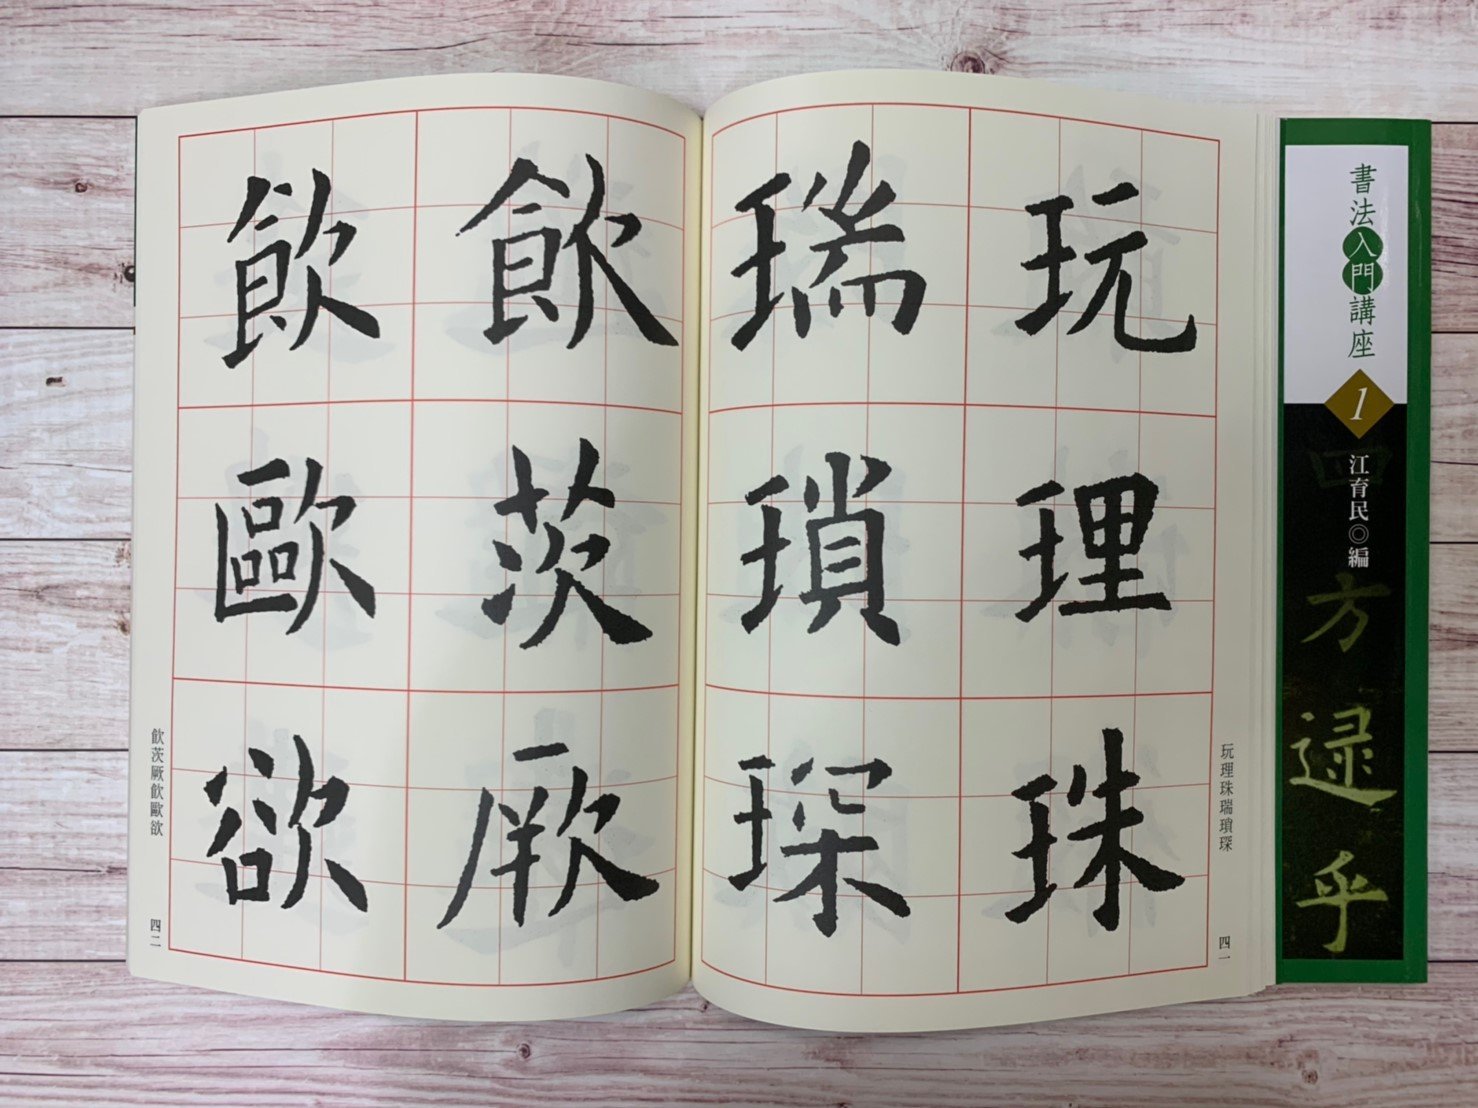 書法入門講座
1
江育民◎編
方逯乎
玩理珠
瑞瑣琛
玩理珠瑞瑣琛
四一
飲茨厥
飲歐欲
飲茨厥飲歐欲
四二